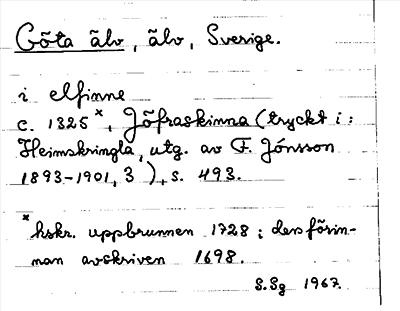 Göta älv, älv, Sverige.
i elfinne
c. 1325ˣ, Jöfraskinna (tryckt i:
Heimskringla, utg. av F. Jónsson
1893-1901, 3), s. 493.
ˣ hskr. uppbrunnen 1728; dessförin-
nan avskriven 1698.
S.Sg 1967.